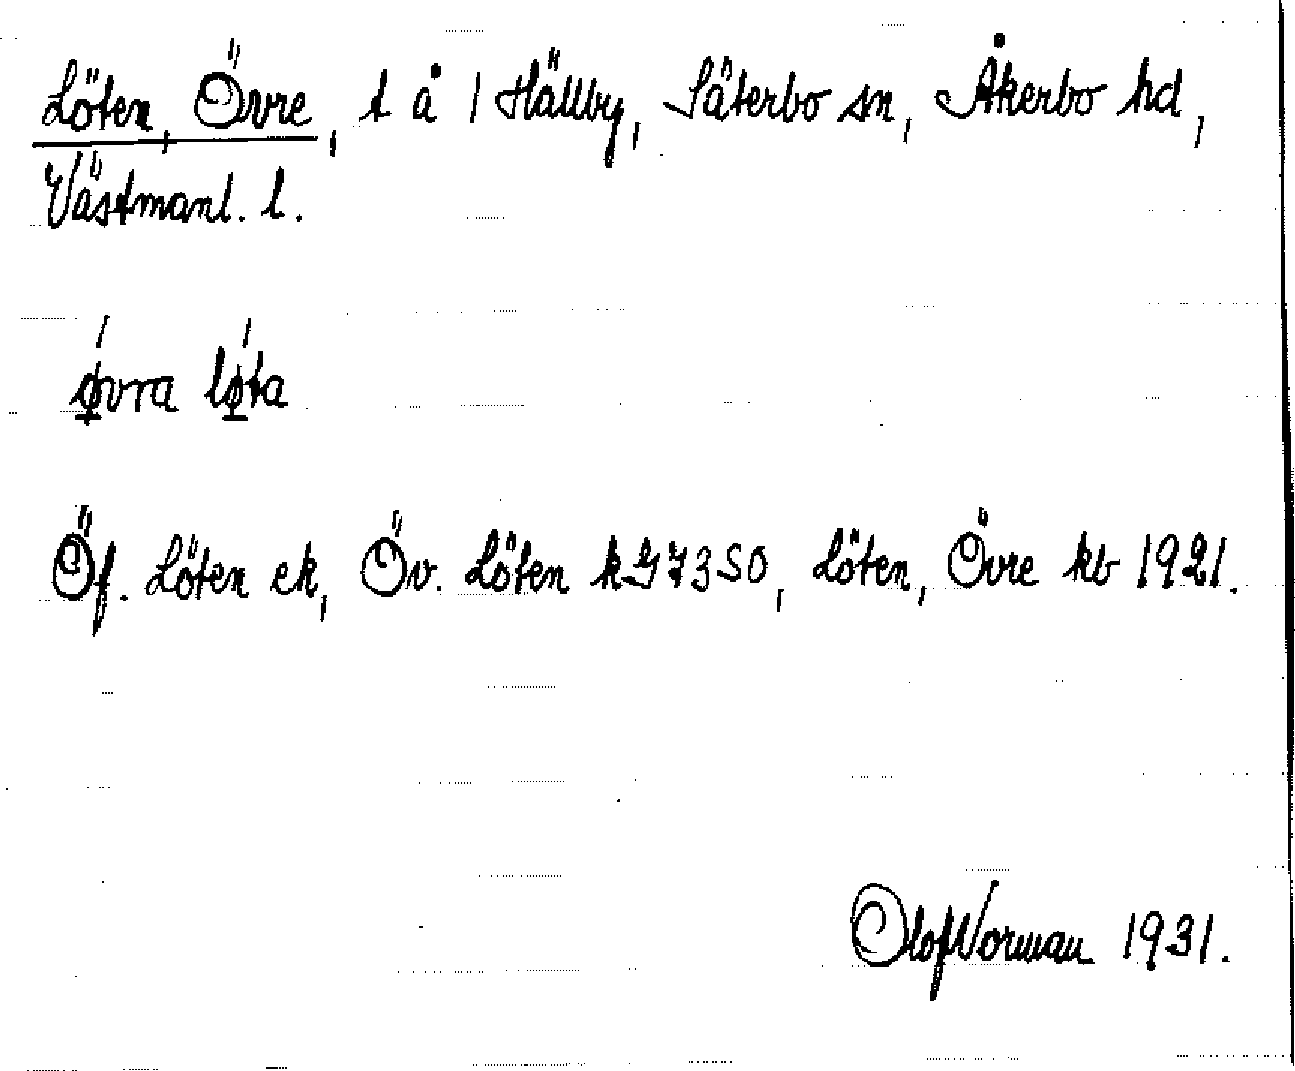 Löten, Övre, t å 1 Hällby, Säterbo sn, Åkerbo hd,
Västmanl. l.
ǿ̲vra lǿ̲ta
Öf. Löten ek, Öv. Löten kG7350, Löten, Övre kb 1921.
Olof Norman 1931.